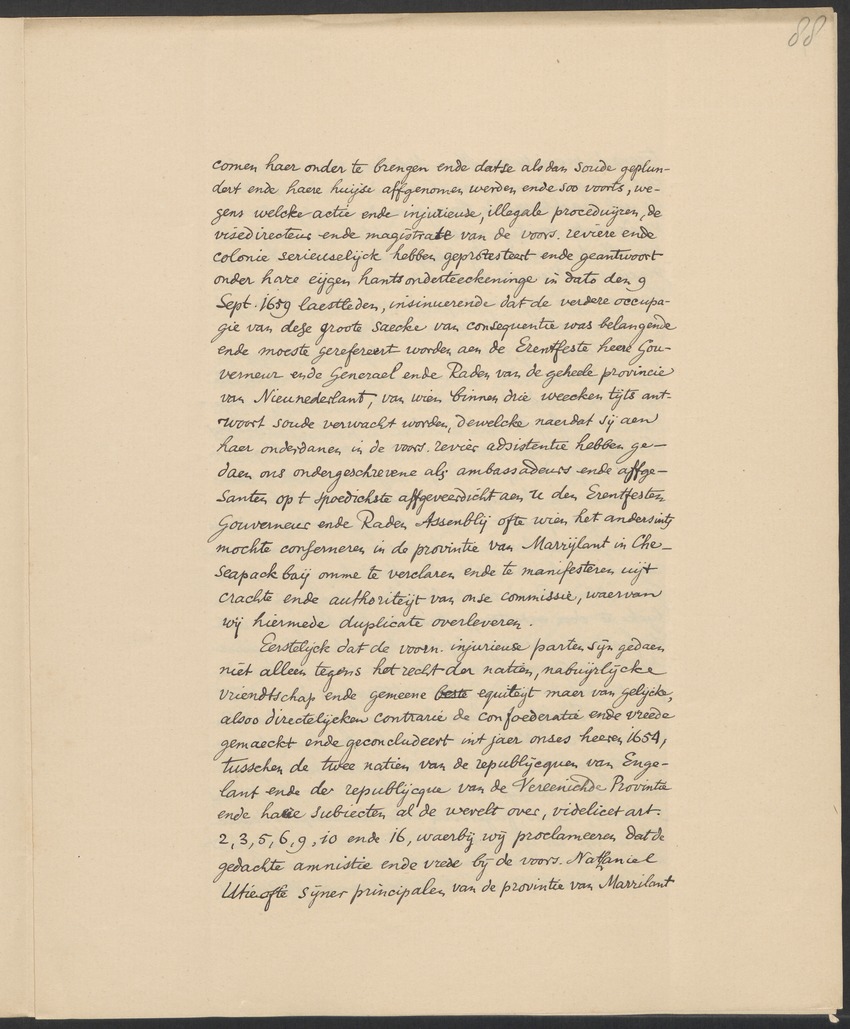 88
comen haer onder te brengen ende datse alsdan soude geplun-
dert ende haere huijse affgenomen werden ende soo voorts, we-
gens welcke actie ende injurieuse, illegale proceduijren, de
visedirecteur ende magistrate van de voors. reviere ende
colonie serieuselijck hebben geprotesteert ende geantwoort
onder hare eijgen hantsonderteeckeninge in dato den 9
Sept. 1659 laestleden, insinuerende dat de verdere occupa-
gie van dese groote saecke van consequentie was belangende
ende moeste gerefereert worden aen de Erentfeste heere Gou-
verneur ende Generael ende Raden van de geheele provincie
van Nieunederlant, van wien binnen drie weecken tijts ant-
woort soude verwacht worden, dewelcke naerdat sij aen
haer onderdanen in de voors. revier adsistentie hebben ge-
daen ons ondergeschrevene als ambassadeurs ende affge-
santen op t spoedichste affgeveerdicht aen u den Erentfesten
Gouverneur ende Raden Assemblij ofte wien het andersints
mochte conserneren in de provintie van Marrijlant in Che-
seapack baij omme te verclaren ende te manifesteren uijt
crachte ende authoriteijt van onse commissie, waervan
wij hiermede duplicate overleveren.
Eerstelijck dat de voorn. injurieuse parten sijn gedaen
niet alleen tegens het recht der natien, nabuijrlijcke
vriendtschap ende gemeene beste equiteijt maer van gelijcke,
alsoo directelijcken contrarie de confoederatie ende vreede
gemaeckt ende geconcludeert int jaer onses heeren 1654,
tusschen de twee natien van de republijcquen van Enge-
lant ende der republijcque van de Vereenichde Provintie
ende haere subiecten al de werelt over, videlicet art.
2, 3, 5, 6, 9, 10 ende 16, waerbij wij proclameeren dat de
gedachte amnistie ende vrede bij de voors. Nathaniel
Utie ofte sijner principalen van de provintie van Marrilant